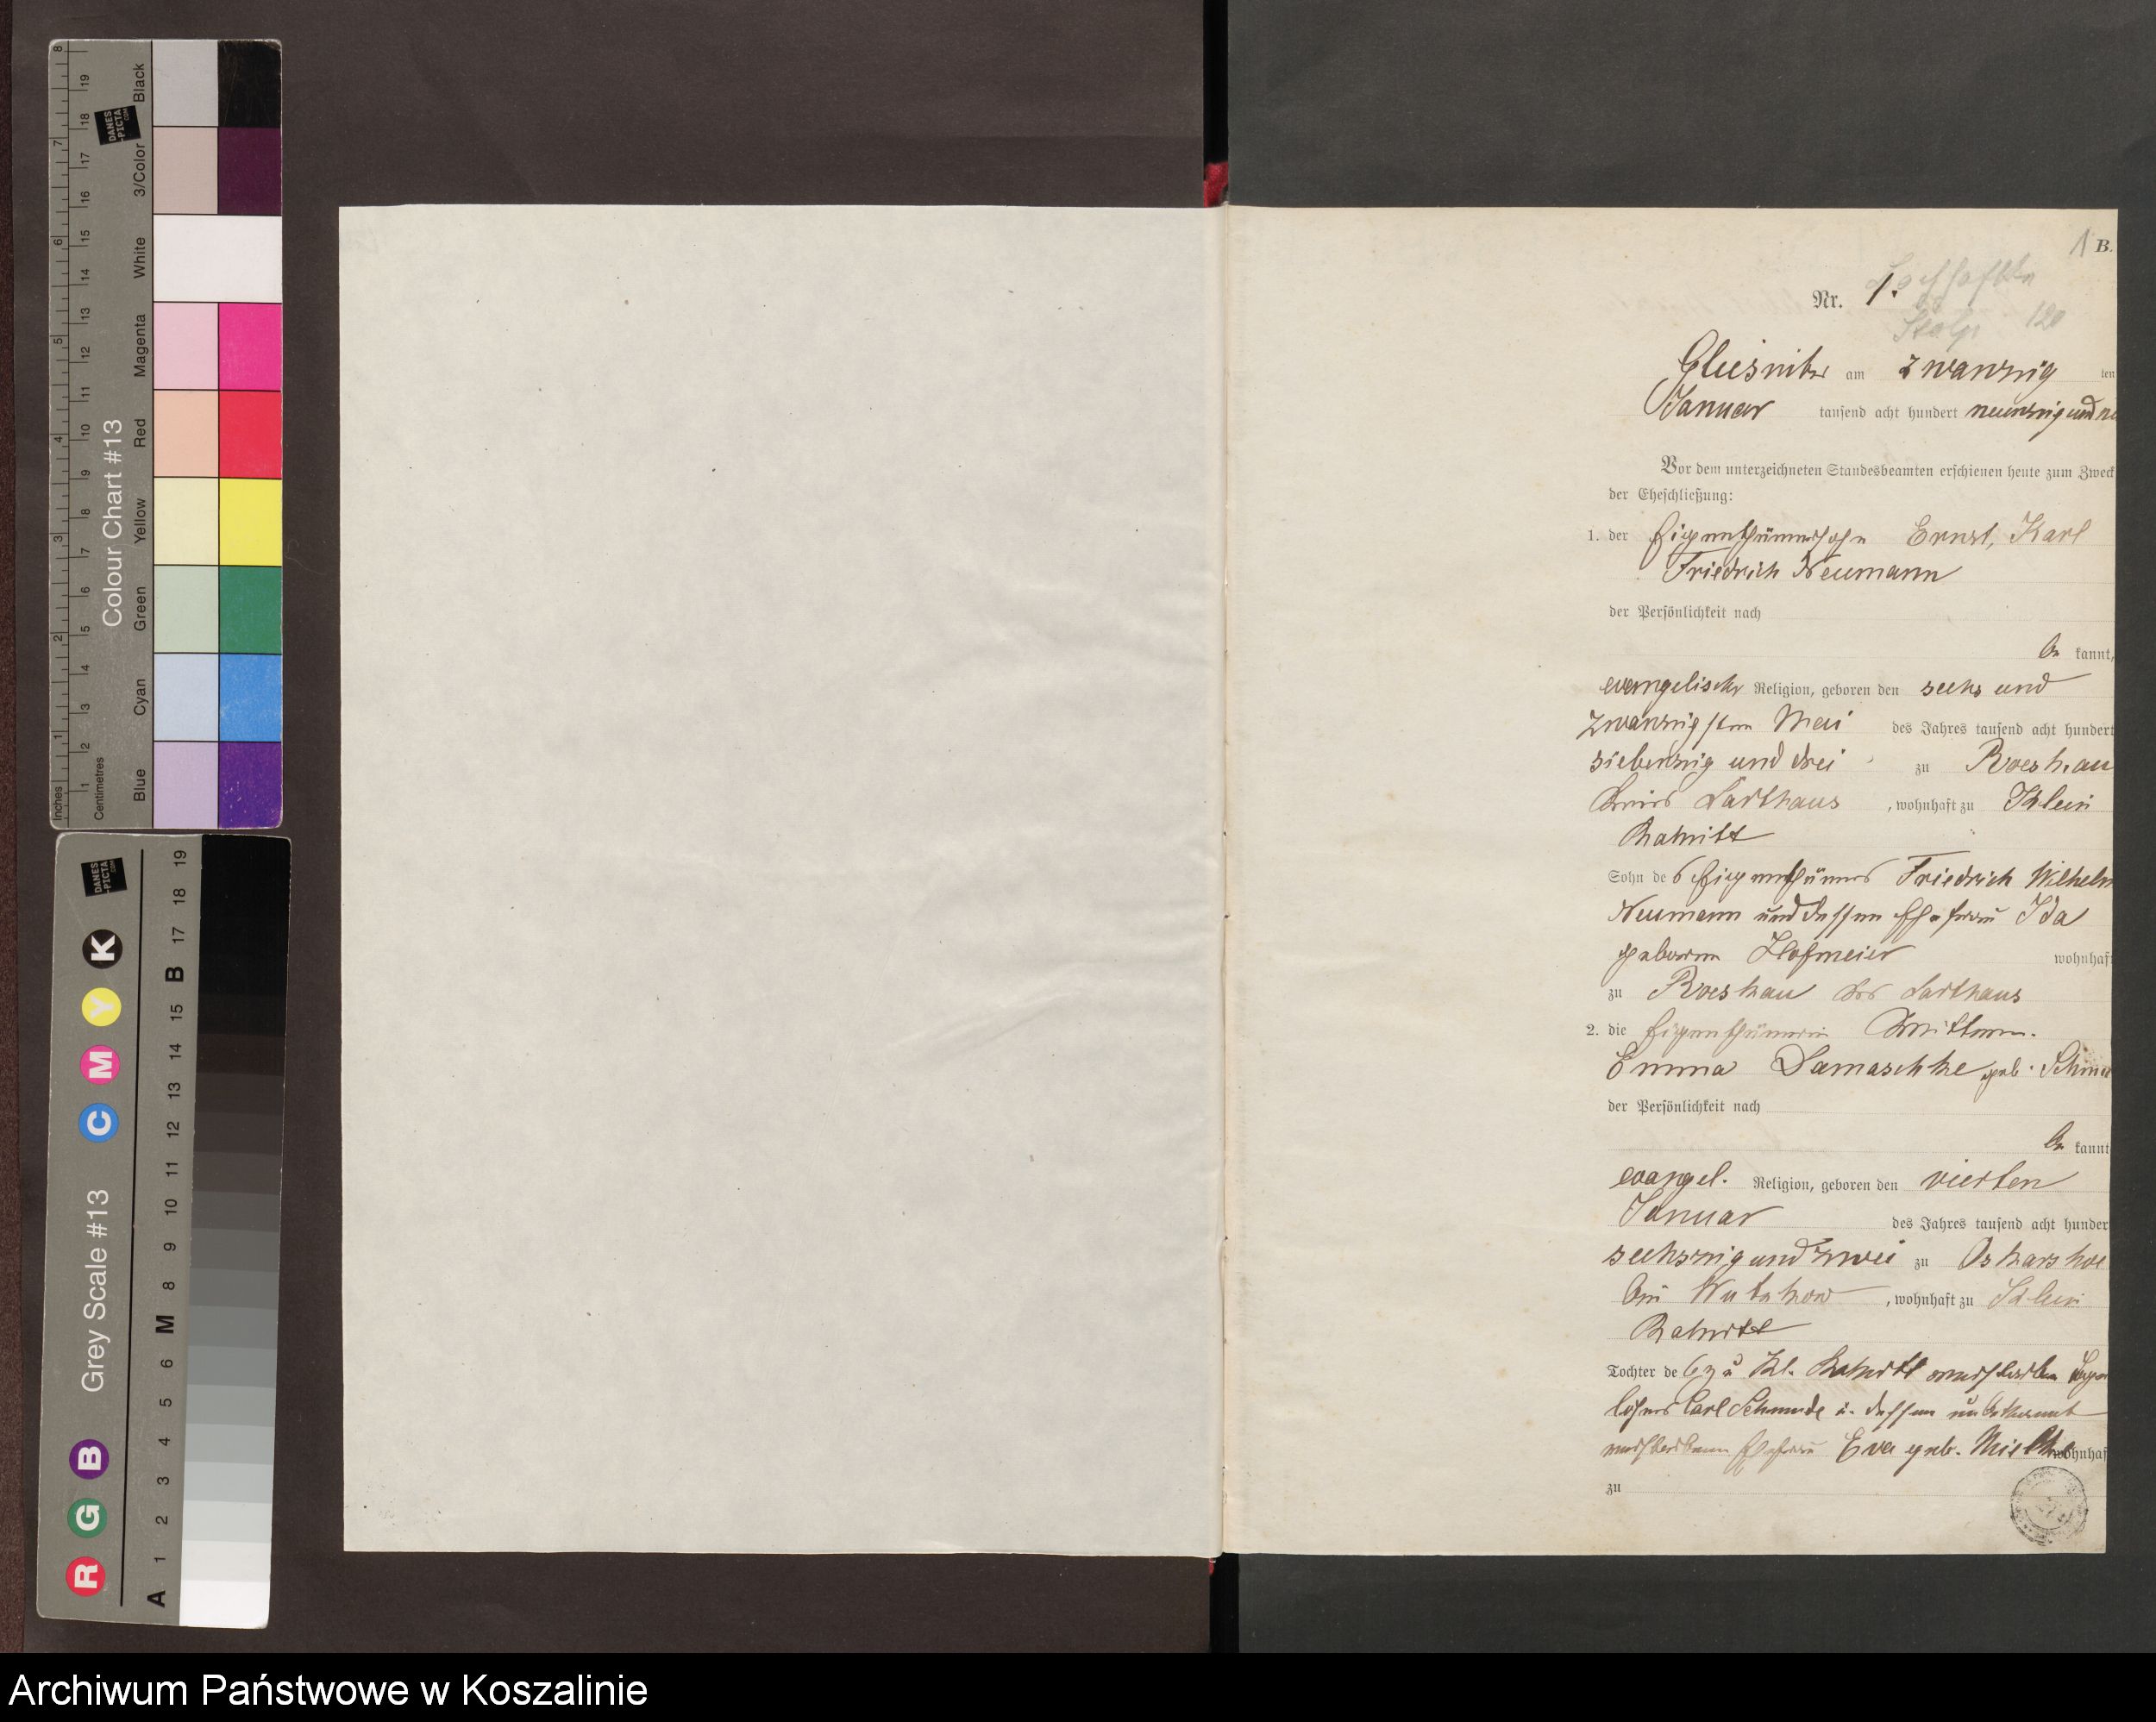 Inches
Centimetres
Colour Chart #13
Blue
Cyan
Green
Yellow
Red
Magenta
White
3/Color
Black
DANES
-PICTA
.COM
Grey Scale #13
R G B C M Y K
A 1 2 3 4 5 6 M 8 9 10 11 12 13 14 15 B 17 18 19
1 B.
Nr. 1.
Stolp 120
Gliesnitz am zwanzig ten
Januar tausend acht hundert neunzig und
Vor dem unterzeichneten Standesbeamten erschienen heute zum Zweck
der Eheschließung:
1. der Eigenthümersohn Ernst, Karl
Friedrich Neumann
der Persönlichkeit nach
be kannt,
evangelischer Religion, geboren den sechs und
zwanzigsten Mai des Jahres tausend acht hundert
siebenzig und drei zu Roeskau
Kreis Carthaus , wohnhaft zu Klein
Rakitt
Sohn des Eigenthümers Friedrich Wilhelm
Neumann und dessen Ehefrau Ida
geborne Hofmeier wohnhaft
zu Roeskau Krs Carthaus
2. die Eigenthümerin Wittwe
Emma Damaschke geb.
der Persönlichkeit nach
be kannt
evangel. Religion, geboren den vierten
Januar des Jahres tausend acht hundert
sechszig und zwei zu
bei Wutzkow , wohnhaft zu Klein
Rakitt
Tochter des zu Kl. Rakitt verstorbenen
Carl Schmude u. dessen unbekannt
verstorbenen Ehefrau Eva geb. Mielke wohnhaft
zu
Archiwum Państwowe w Koszalinie